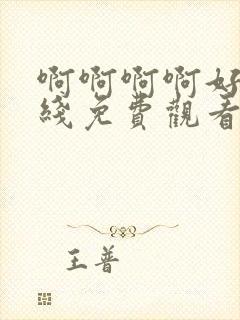 啊啊啊啊好
綫免費觀看
王普